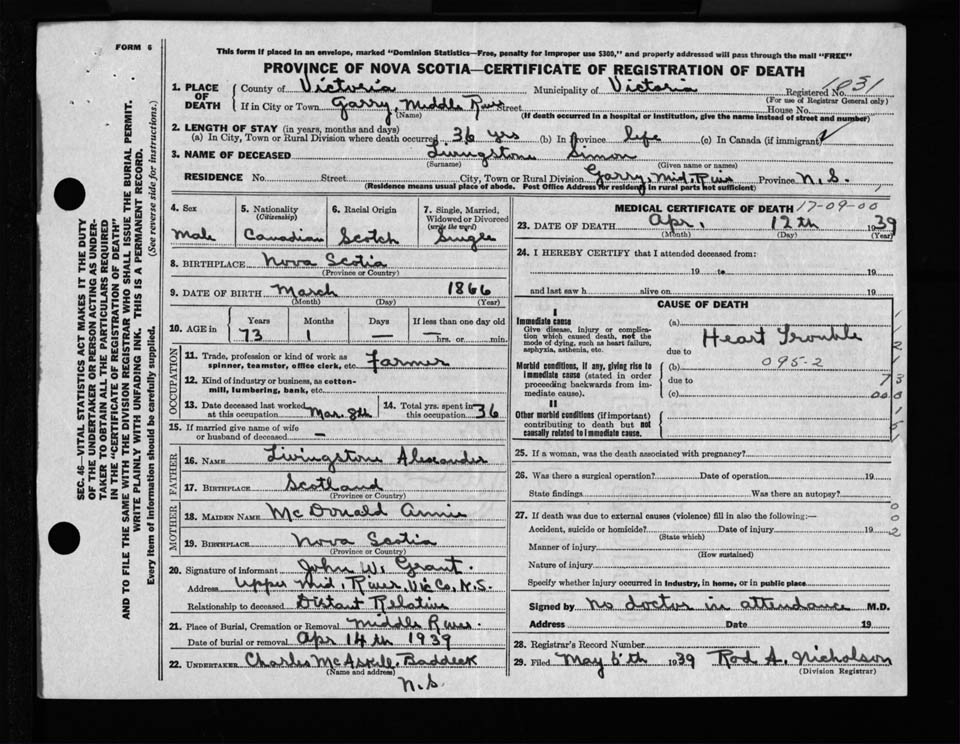 FORM 6
This form if placed in an envelope, marked "Dominion Statistics—Free, penalty for improper use $300," and properly addressed will pass through the mail "FREE"
PROVINCE OF NOVA SCOTIA—CERTIFICATE OF REGISTRATION OF DEATH
SEC. 46—VITAL STATISTICS ACT MAKES IT THE DUTY
OF THE UNDERTAKER OR PERSON ACTING AS UNDER-
TAKER TO OBTAIN ALL THE PARTICULARS REQUIRED
IN THE "CERTIFICATE OF REGISTRATION OF DEATH"
AND TO FILE THE SAME WITH THE DIVISION REGISTRAR WHO SHALL ISSUE THE BURIAL PERMIT.
WRITE PLAINLY WITH UNFADING INK. THIS IS A PERMANENT RECORD.
Every item of information should be carefully supplied. (See reverse side for instructions.)
1. PLACE OF DEATH County of Victoria Municipality of Victoria Registered No. 1031
(For use of Registrar General only)
If in City or Town Garry, Middle River Street House No.
(Name) (If death occurred in a hospital or institution, give the name instead of street and number)
2. LENGTH OF STAY (in years, months and days)
(a) In City, Town or Rural Division where death occurred 36 yrs (b) In Province life (c) In Canada (if immigrant)
3. NAME OF DECEASED Livingstone Simon
(Surname) (Given name or names)
RESIDENCE No. Street City, Town or Rural Division Garry, Mid. River Province N.S.
(Residence means usual place of abode. Post Office Address for residents in rural parts not sufficient)
4. Sex Male
5. Nationality (Citizenship) Canadian
6. Racial Origin Scotch
7. Single, Married, Widowed or Divorced (write the word) Single
8. BIRTHPLACE Nova Scotia
(Province or Country)
9. DATE OF BIRTH March 1866
(Month) (Day) (Year)
10. AGE in Years Months Days If less than one day old
73 1 — — hrs. or min.
OCCUPATION
11. Trade, profession or kind of work as spinner, teamster, office clerk, etc. Farmer
12. Kind of industry or business, as cotton-mill, lumbering, bank, etc.
13. Date deceased last worked at this occupation Mar. 8th
14. Total yrs. spent in this occupation 36
15. If married give name of wife or husband of deceased —
FATHER
16. NAME Livingstone Alexander
17. BIRTHPLACE Scotland
(Province or Country)
MOTHER
18. MAIDEN NAME McDonald Annie
19. BIRTHPLACE Nova Scotia
(Province or Country)
20. Signature of informant John W. Grant.
Address Upper Mid. River, Vic Co, N.S.
Relationship to deceased Distant Relative
21. Place of Burial, Cremation or Removal Middle River.
Date of burial or removal Apr 14th 1939
22. UNDERTAKER Charles McAskill, Baddeck
(Name and address)
N.S.
MEDICAL CERTIFICATE OF DEATH 17-09-00
23. DATE OF DEATH Apr. 12th 1939
(Month) (Day) (Year)
24. I HEREBY CERTIFY that I attended deceased from:
19 to 19
and last saw h alive on 19
CAUSE OF DEATH
I
Immediate cause
Give disease, injury or complication which caused death, not the mode of dying, such as heart failure, asphyxia, asthenia, etc.
(a) Heart Trouble
due to
Morbid conditions, if any, giving rise to immediate cause (stated in order proceeding backwards from immediate cause).
(b) 095-2
due to
(c)
II
Other morbid conditions (if important) contributing to death but not causally related to immediate cause.
25. If a woman, was the death associated with pregnancy?
26. Was there a surgical operation? Date of operation 19
State findings Was there an autopsy?
27. If death was due to external causes (violence) fill in also the following:—
Accident, suicide or homicide? Date of injury 19
(State which)
Manner of injury
(How sustained)
Nature of injury
Specify whether injury occurred in industry, in home, or in public place
Signed by no doctor in attendance M.D.
Address Date 19
28. Registrar's Record Number
29. Filed May 5th 1939 Rod A. Nicholson
(Division Registrar)